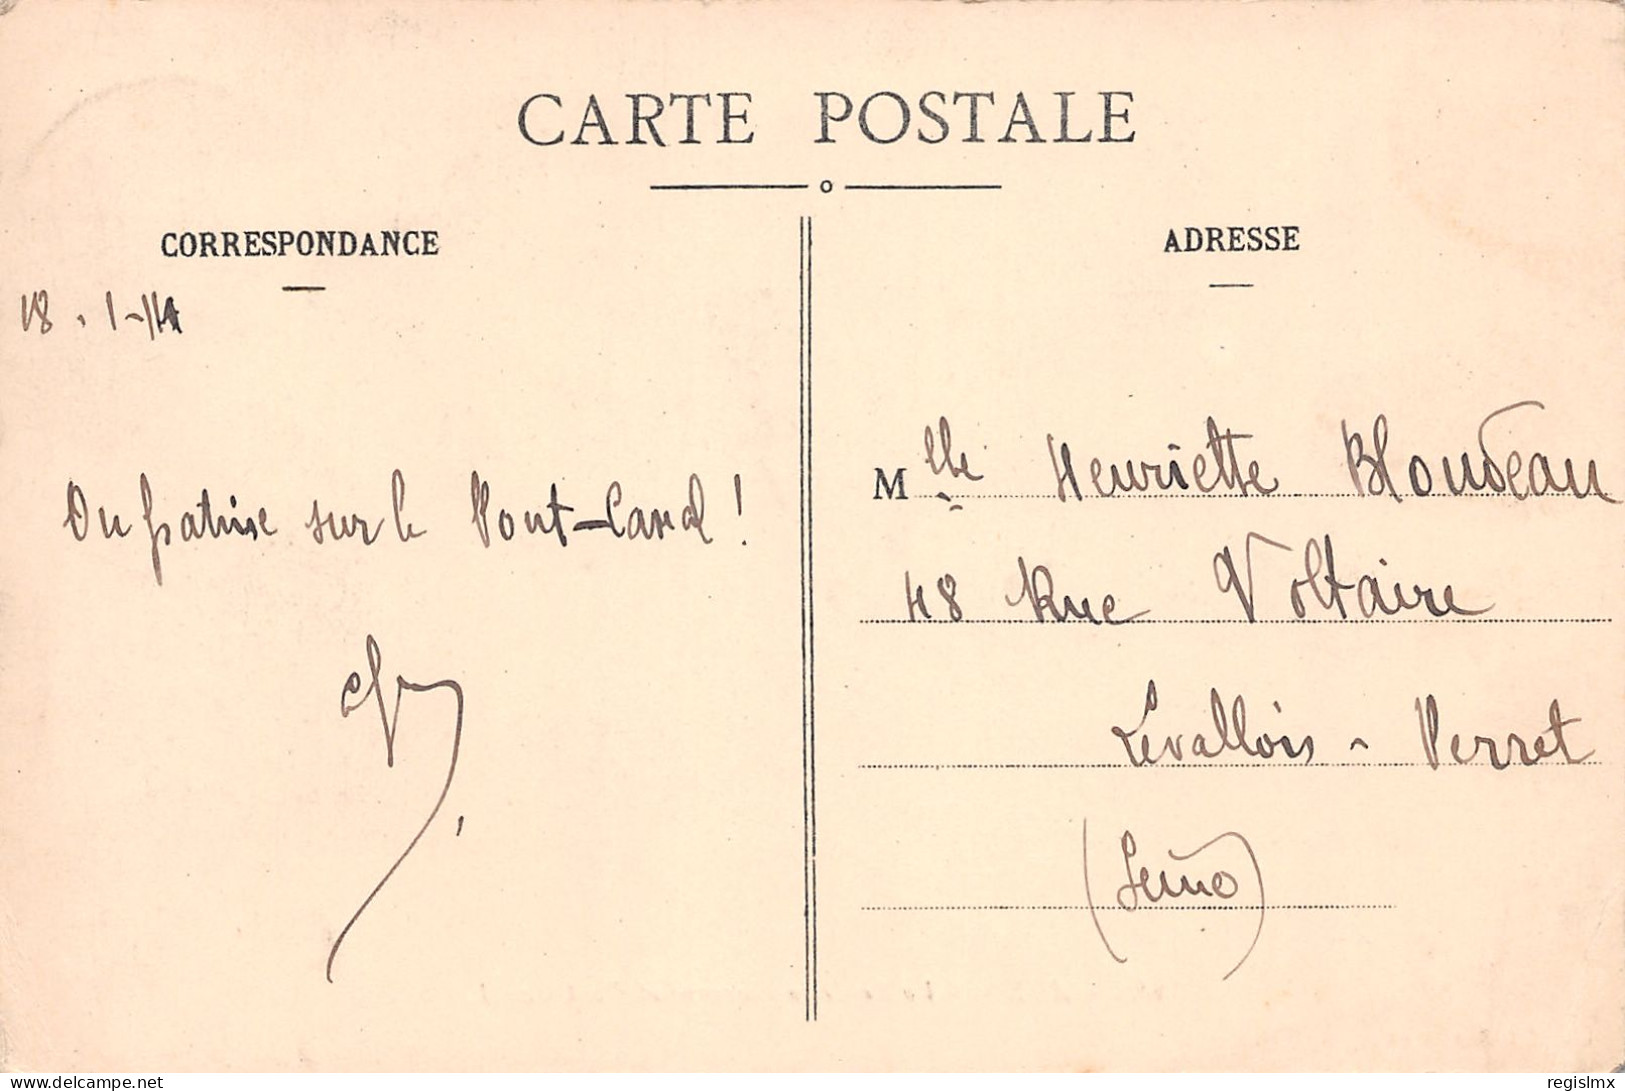 CARTE POSTALE
CORRESPONDANCE
18.1-14
On patine sur le Pont-Canal !
ADRESSE
Mlle Henriette Blondeau
48 Rue Voltaire
Levallois - Perret
(Seine)
delcampe.net
regislmx